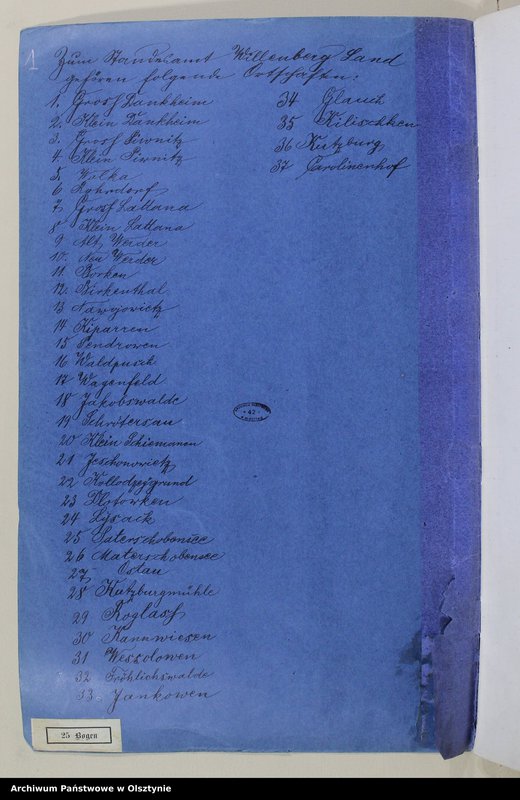 1
Zum Standesamt Willenberg Land
gehören folgende Ortschaften:
1. Groß Dankheim
2. Klein Dankheim
3. Groß Piwnitz
4. Klein Piwnitz
5. Wolka
6 Rohrdorf
7. Groß Lattana
8 Klein Lattana
9 Alt Werder
10. Neu Werder
11. Borken
12. Birkenthal
13 Nawojowietz
14 Kiparren
15 Pendrowen
16 Waldpusch
17 Wagenfeld
18 Jakobswalde
19 Schrötersau
20 Klein Schiemanen
21 Jeschonowietz
22 Kollodzeygrund
23 Plotowken
24 Lysack
25 Paterschobensee
26 Materschobensee
27 Ostau
28 Kutzburgmühle
29 Röglass
30 Kannwiesen
31 Wessolowen
32 Fröhlichswalde
33. Jankowen
34 Glauch
35 Kilischken
36 Kutzburg
37 Carolinenhof
42
25 Bogen
Archiwum Państwowe w Olsztynie